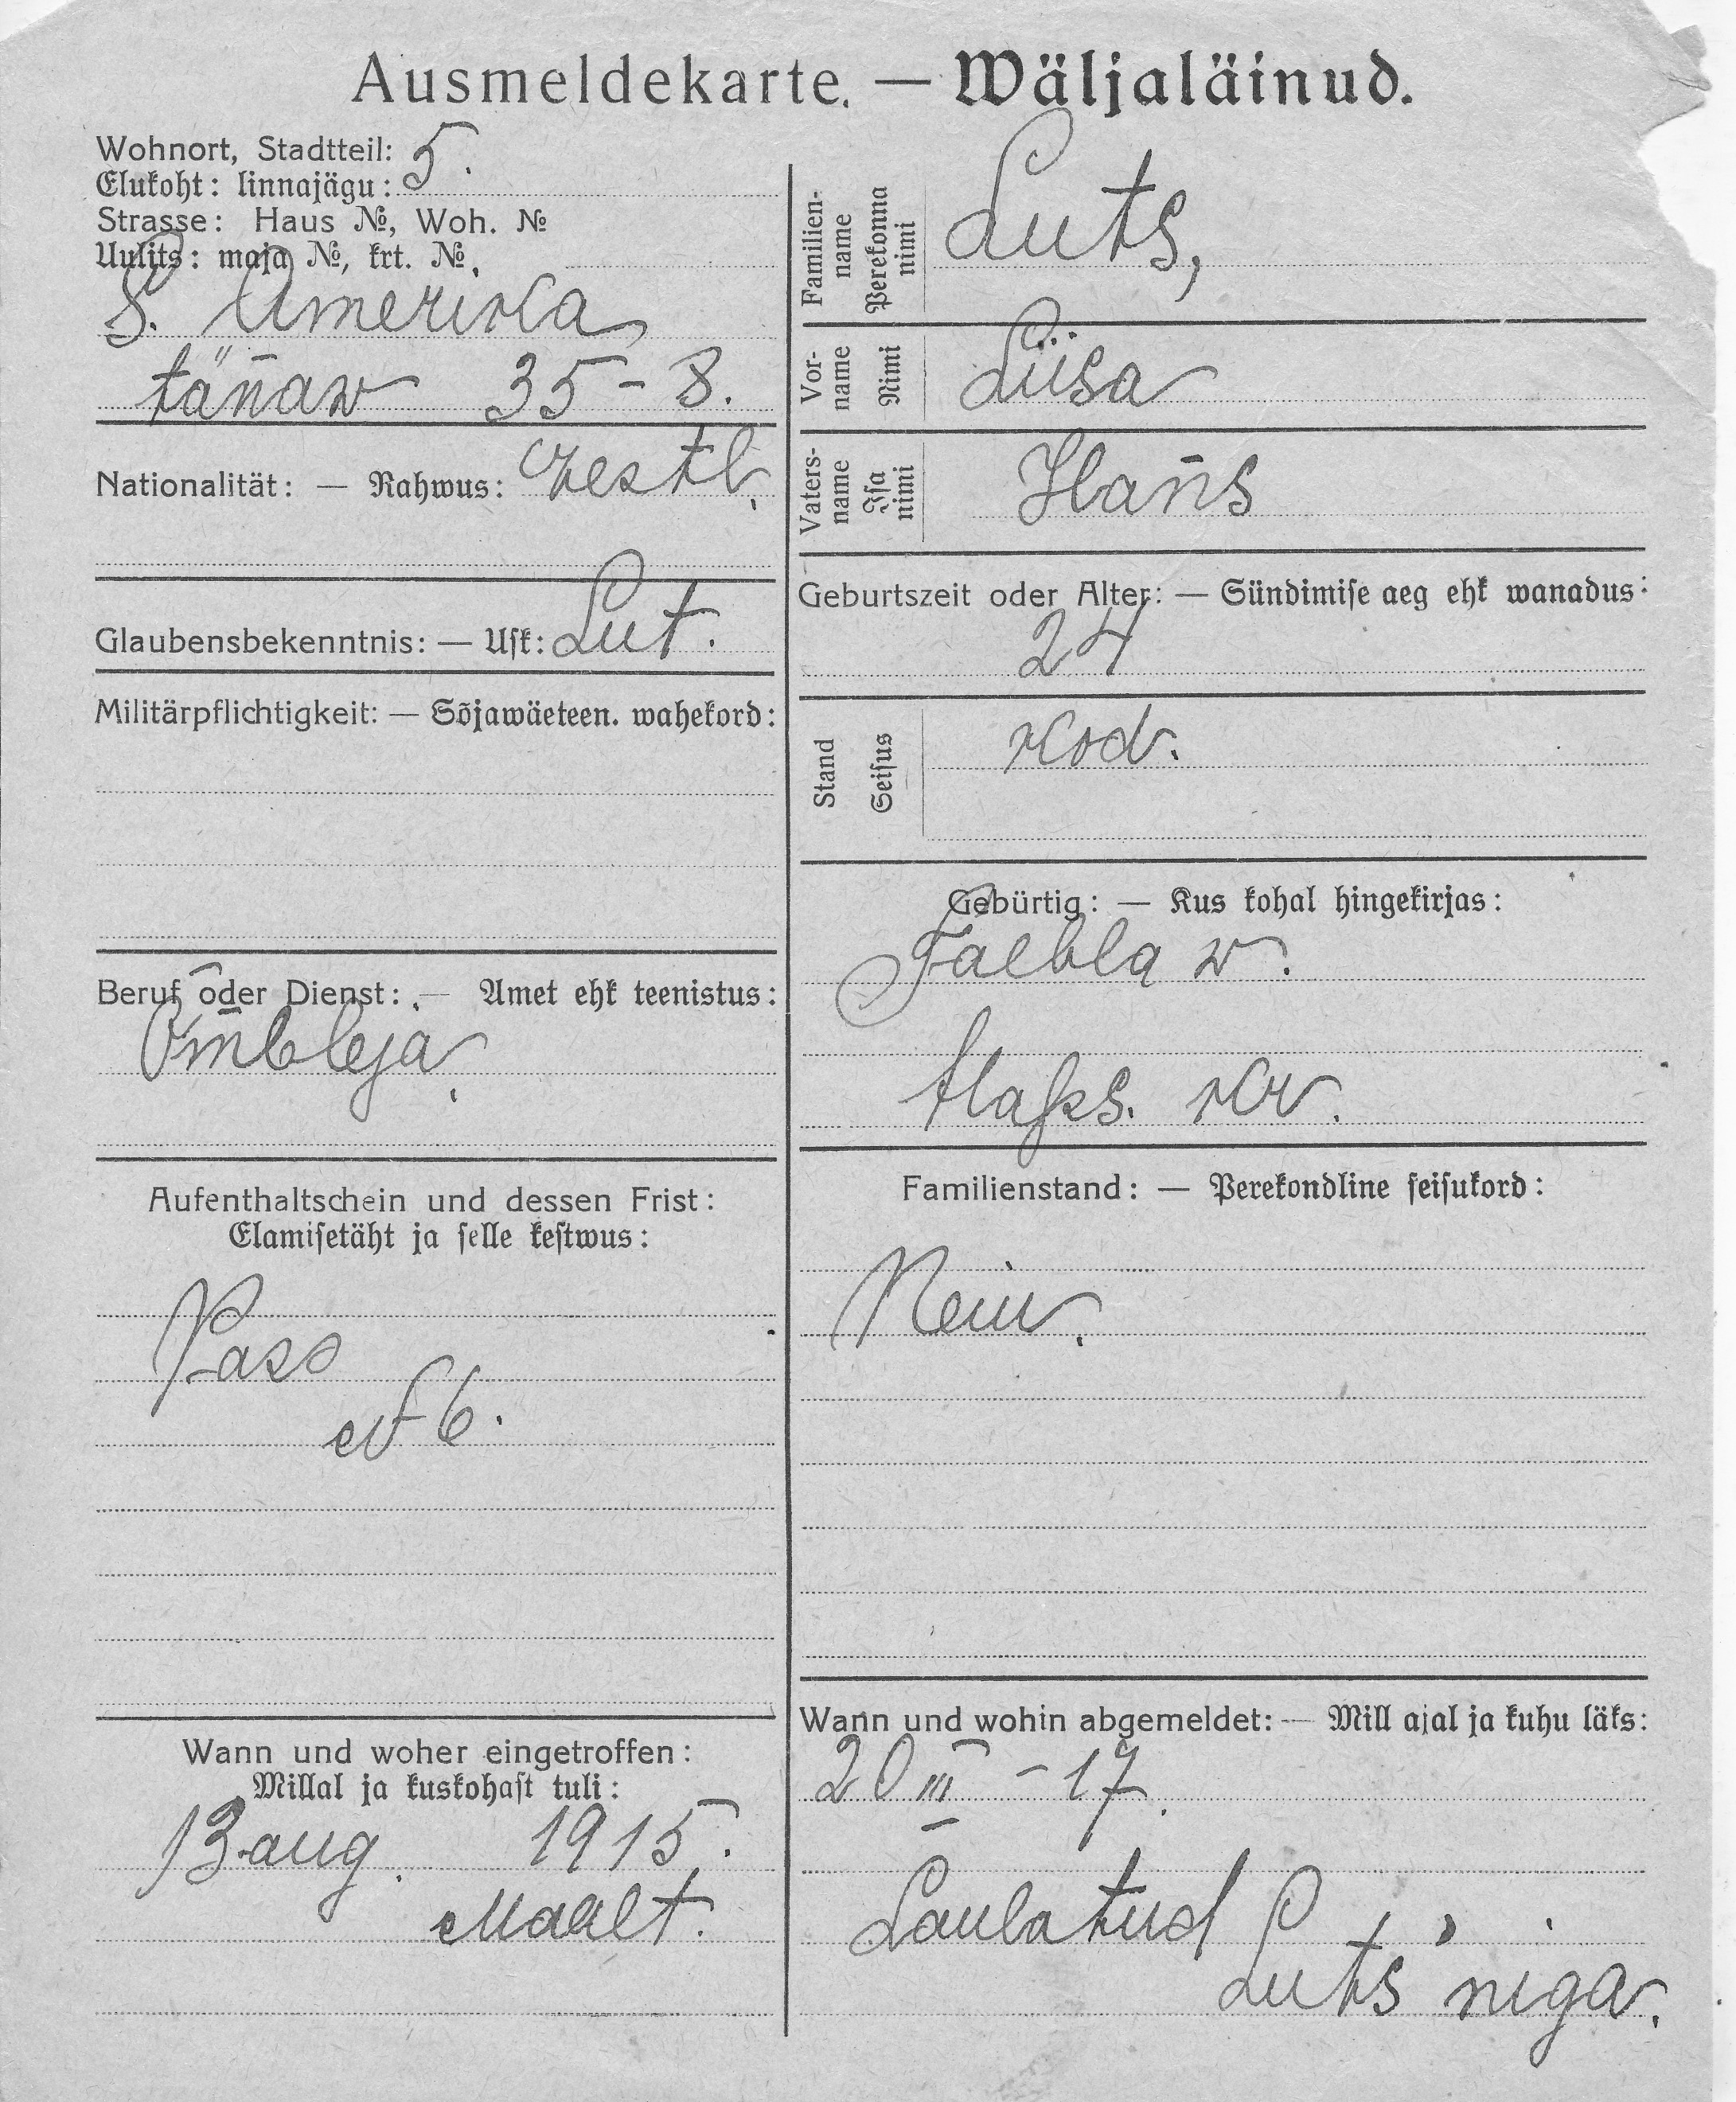 Ausmeldekarte. — Wäljaläinud.
Wohnort, Stadtteil: 5.
Elukoht: linnajägu:
Strasse: Haus №, Woh. №
Uulits: maja №, krt. №
S. Amerika
tän̄aw 35-8.
Nationalität: — Rahwus: Eestl.
Glaubensbekenntnis: — Usk: Lut.
Militärpflichtigkeit: — Sõjawäeteen. wahekord:
Beruf oder Dienst: — Amet ehk teenistus:
Õmbleja
Aufenthaltschein und dessen Frist:
Elamisetäht ja selle kestwus:
Pass
№ 6.
Wann und woher eingetroffen:
Millal ja kuskohast tuli:
13 aug. 1915.
Maalt.
Familien-
name
Perekonna
nimi
Luts,
Vor-
name
Nimi
Liisa
Vaters-
name
Isa
nimi
Han̄s
Geburtszeit oder Alter: — Sündimise aeg ehk wanadus:
24
Stand
Seisus
kod.
Gebürtig: — Kus kohal hingekirjas:
Taebla w.
Haaps. kr.
Familienstand: — Perekondline seisukord:
Nein.
Wann und wohin abgemeldet: — Mill ajal ja kuhu läks:
20 III - 17.
Laulatud
Luts'niga.